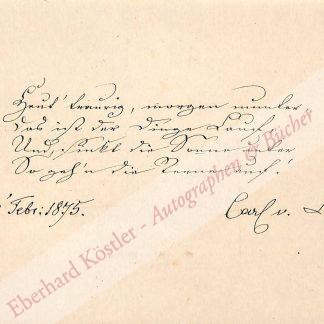 Heut' traurig, morgen munter
Das ist der Dinge Lauf.
Und, sinkt die Sonne unter
So geh'n die Sterne auf!
Febr: 1875.
Carl v.
Eberhard Köstler - Autographen & Bücher